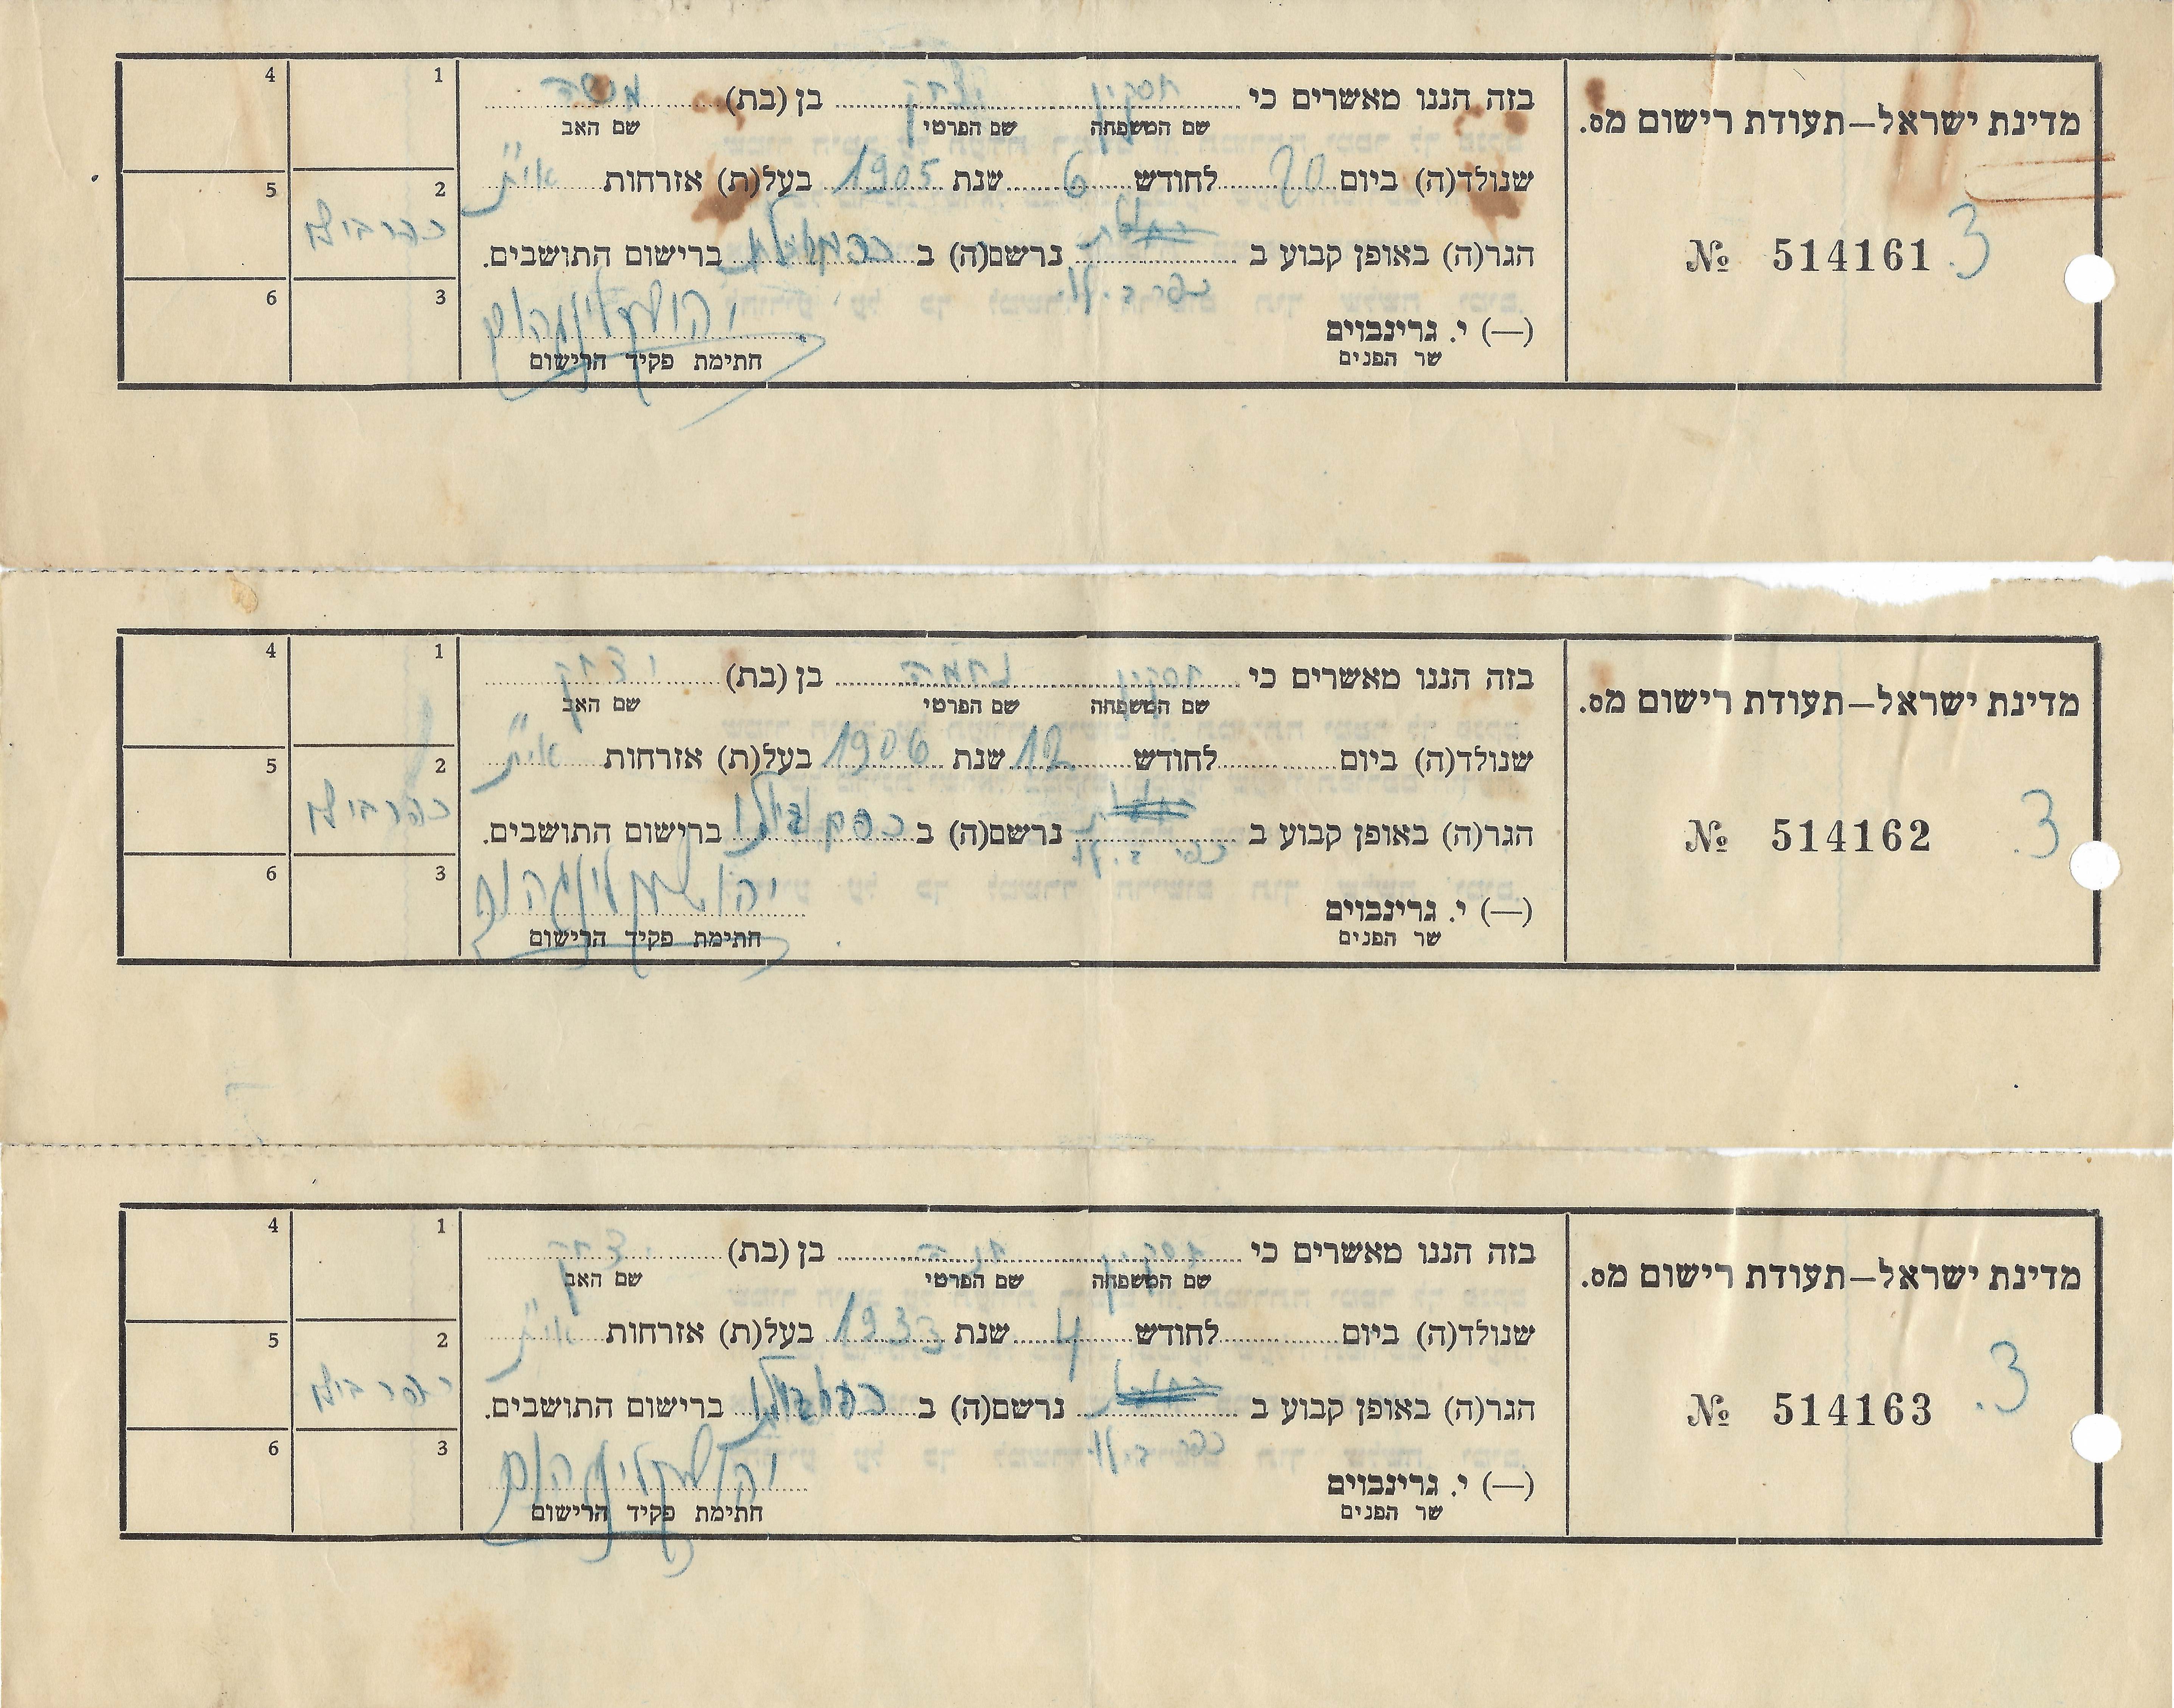 מדינת ישראל–תעודת רישום מס.
№ 514161 3.
בזה הננו מאשרים כי חסקין יצחק בן (בת) משה
שם המשפחה שם הפרטי שם האב
שנולד(ה) ביום 20 לחודש 6 שנת 1905 בעל(ת) אזרחות
הגר(ה) באופן קבוע ב נרשם(ה) ב ברישום התושבים.
כפר בילו
(—) י. גרינבוים
שר הפנים חתימת פקיד הרישום
1 4
2 5
כפר בילו
3 6
מדינת ישראל–תעודת רישום מס.
№ 514162 3.
בזה הננו מאשרים כי חסקין נחמה בן (בת) יצחק
שם המשפחה שם הפרטי שם האב
שנולד(ה) ביום לחודש 12 שנת 1906 בעל(ת) אזרחות
הגר(ה) באופן קבוע ב נרשם(ה) ב כפר בילו ברישום התושבים.
כפר בילו
(—) י. גרינבוים
שר הפנים חתימת פקיד הרישום
1 4
2 5
כפר בילו
3 6
מדינת ישראל–תעודת רישום מס.
№ 514163 3.
בזה הננו מאשרים כי חסקין חנה בן (בת) יצחק
שם המשפחה שם הפרטי שם האב
שנולד(ה) ביום לחודש 4 שנת 1933 בעל(ת) אזרחות
הגר(ה) באופן קבוע ב נרשם(ה) ב כפר בילו ברישום התושבים.
כפר בילו
(—) י. גרינבוים
שר הפנים חתימת פקיד הרישום
1 4
2 5
כפר בילו
3 6